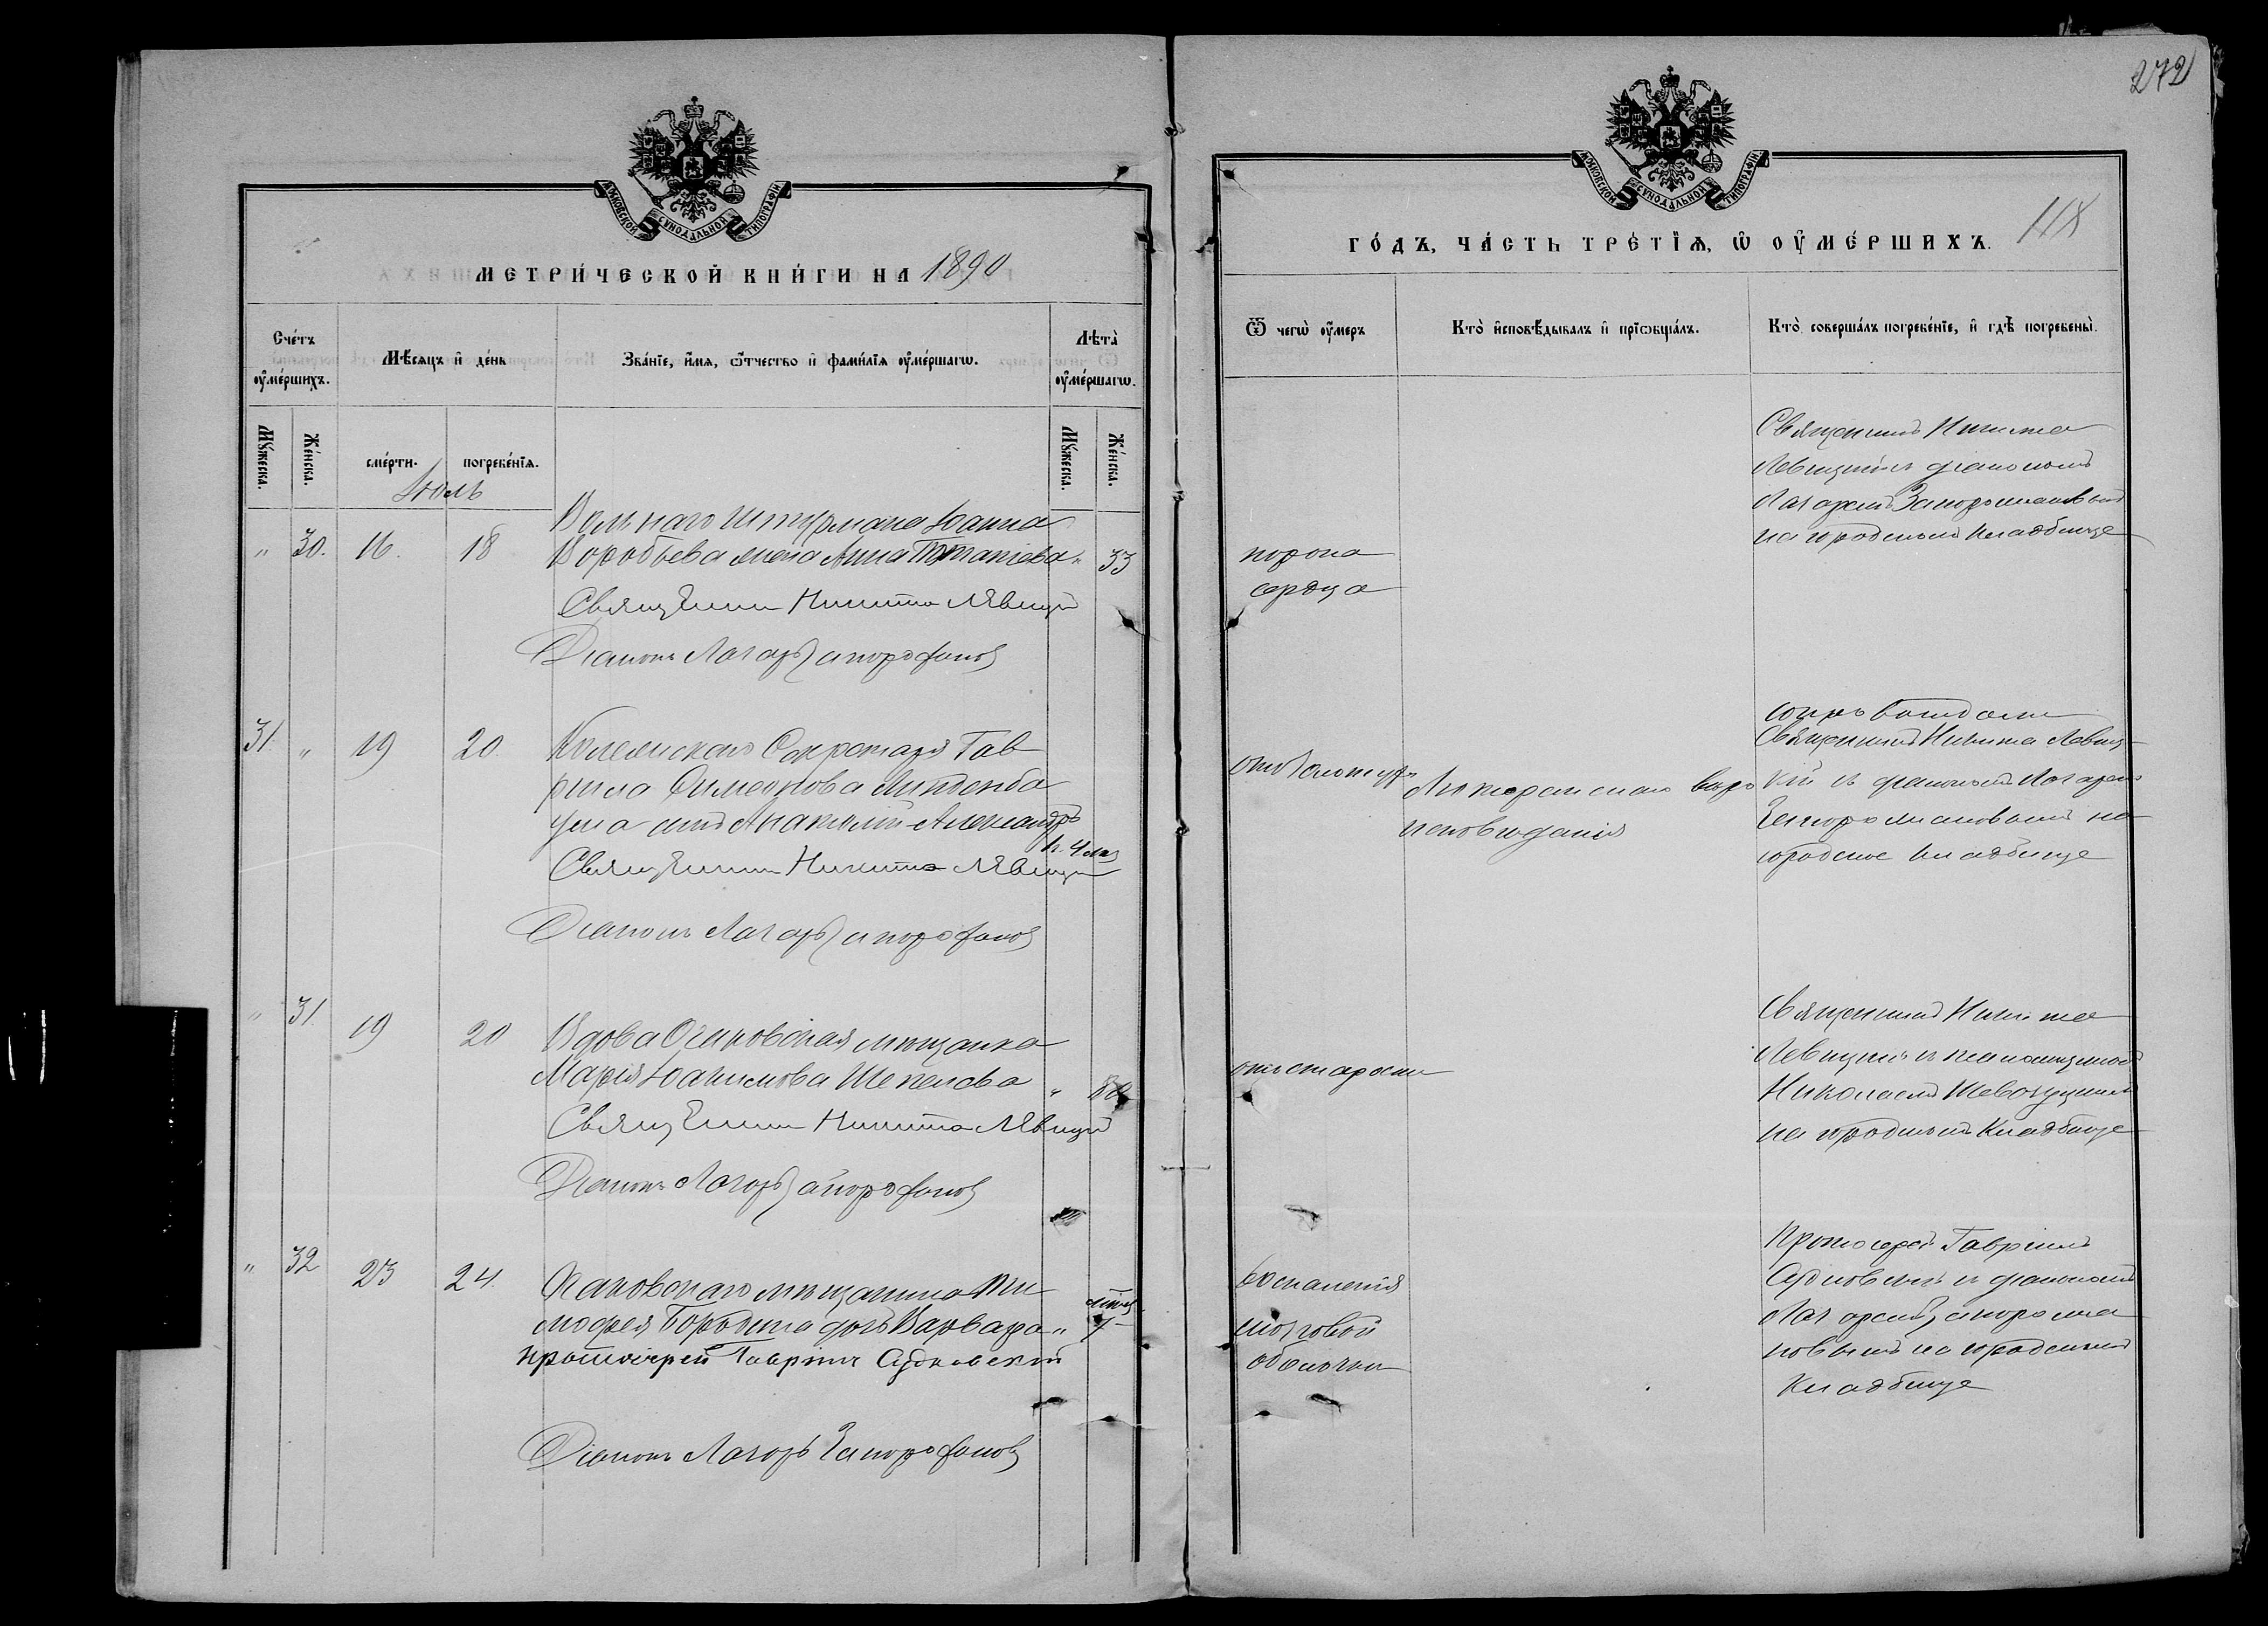 272
МОСКОВСКОЙ СѴНОДАЛЬНОЙ ТИПОГРАФІИ
МЕТРИ́ЧЕСКОЙ КНИ́ГИ НА 1890
Сче́тъ оу҆ме́ршихъ.
Мѣ́сяцъ и҆ де́нь
Зва́нїе, и҆́мя, ѻ҆́тчество и҆ фами́лїя оу҆ме́ршагѡ.
Лѣта̀ оу҆ме́ршагѡ.
Мꙋ́жеска.
Же́нска.
сме́рти.
погребе́нїѧ.
Мꙋ́жеска.
Же́нска.
Іюль
" 30. 16. 18
Вольнаго Штурмана Іоанна
Воробьева жена Анна " 33
Священникъ Никита Левицкій
Діаконъ Лазарь Запорожановъ
31. " 19 20.
Коллежскаго Секретаря Гав-
риила Симеонова Линденба
ума сынъ Анатолій-Александръ
4 мѣс
Священникъ Никита Левицкій
Діаконъ Лазарь Запорожановъ
" 31. 19 20
Вдова Очаковская мѣщанка
Марія Іоакимова "
Священникъ Никита Левицкій
Діаконъ Лазарь Запорожановъ
" 32 23 24.
Очаковскаго мѣщанина Ти-
мофея Бородина дочь Варвара "
Протоіерей Гавріилъ Судковскій
Діаконъ Лазарь Запорожановъ
МОСКОВСКОЙ СѴНОДАЛЬНОЙ ТИПОГРАФІИ
ГО́ДЪ, ЧА́СТЬ ТРЕ́ТЇѦ, Ѡ҆ ОУ҆МЕ́РШИХЪ.
118
Ѿ чегѡ̀ оу҆́меръ
Кто̀ и҆сповѣ́дывалъ и҆ прїѡбща́лъ.
Кто̀ соверша́лъ погребе́нїе, и҆ гдѣ̀ погребены̀.
порока
сердца
Священникъ Никита
Левицкій съ діакономъ
Лазаремъ Запорожановымъ
на городскомъ кладбище
Лютеранскаго вѣро
исповѣданія
сопровождали
Священникъ Никита Левиц-
кій съ діакономъ Лазаремъ
Запорожановымъ на
городское кладбище
отъ старости
Священникъ Никита
Левицкій съ псаломщикомъ
Николаемъ
на городскомъ Кладбище
воспаленія
мозговой
оболочки
Протоіерей Гавріилъ
Судковскій съ діакономъ
Лазаремъ Запорожа
новымъ на городскомъ
Кладбище